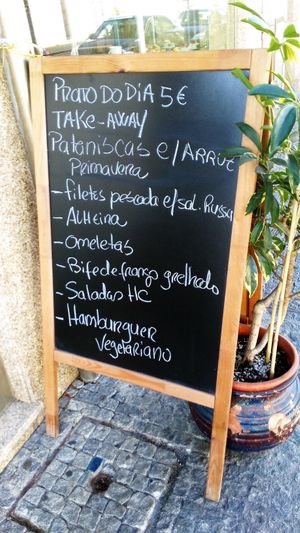 PRATO DO DIA 5 €
TAKE-AWAY
Pataniscas c/ARROZ
Primavera
- filetes pescada c/sal. Russa
- Alheira
- omeletas
- Bife de frango grelhado
- Saladas HC
- Hamburguer
Vegetariano